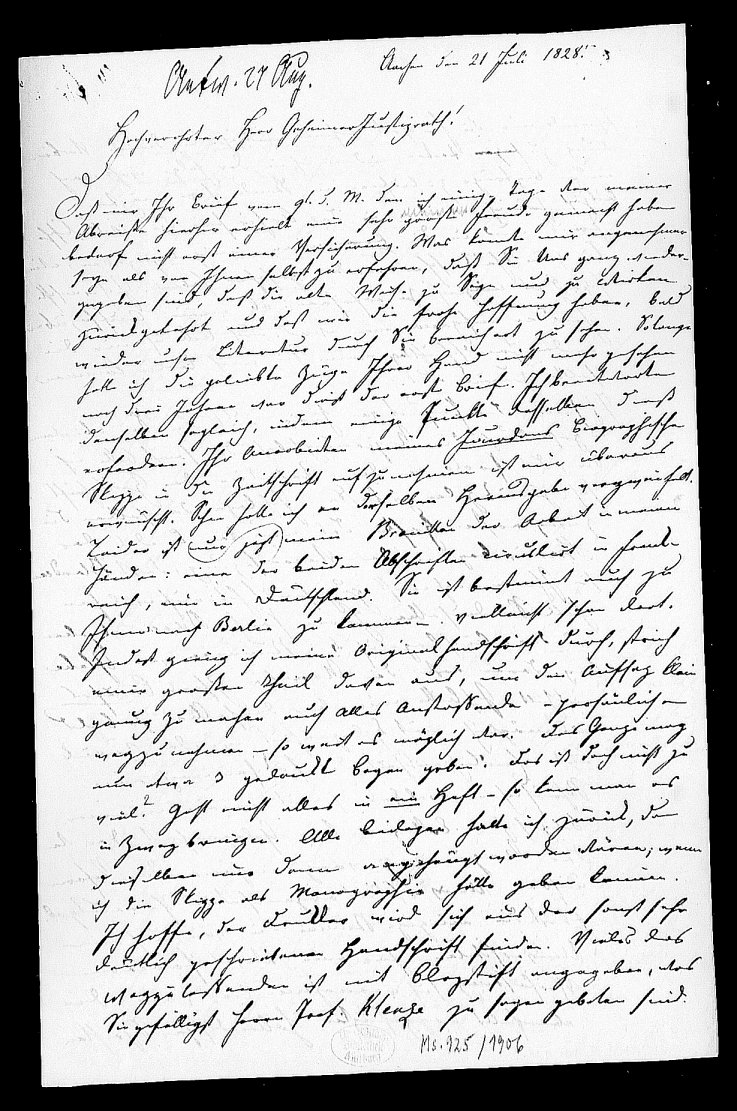 Antw. 27 Aug.
Aachen den 21 Juli 1828.
Hochverehrter Herr Geheimer Justizrath!
Daß mir Ihr Brief vom 9t. d. M. den ich einige Tage vor meiner
Abreise hierher erhielt eine sehr große Freude gemacht haben
bedarf nicht erst einer Versicherung. Was könnte mir angenehmer
seyn als von Ihnen selbst zu erfahren, daß Sie Uns ganz wieder-
gegeben sind, daß die alte Weise zu Seyn und zu Wirken
zurückgekehrt und daß wir die frohe Hoffnung haben, bald
wieder unsre Literatur durch Sie bereichert zu sehen. Solange
hatte ich die geliebten Züge Ihrer Hand nicht mehr gesehen
nach drei Jahren war dieß der erste Brief. Ich beantwortete
denselben sogleich, indem einige Punkte desselben dieß
erfordern. Ihr Anerbieten meines Jourdans biographische
Skizze in die Zeitschrift aufzunehmen ist mir überaus
erwünscht. Schon hatte ich an derselben Herausgabe verzweifelt.
Leider ist nur jetzt mein Brouillon der Arbeit in meinen
Händen: eine der beiden Abschriften circulirt in Frank-
reich, eine in Deutschland. Sie ist bestimmt auch zu
Ihnen nach Berlin zu kommen vielleicht schon dort.
Indeß ging ich meine Originalhandschrift durch, strich
einen großen Theil davon aus, um den Aufsatz klein
genug zu machen auch Alles Anstoßende – persönliche
wegzunehmen – so weit es möglich war. Das Ganze mag
nun etwa 3 gedruckte Bogen geben. Das ist doch nicht zu
viel? Geht nicht alles in ein Heft – so kann man es
in Zwey bringen. Alle Beilagen halte ich zurück, da
dieselben nur dann angehängt worden wären, wenn
ich die Skizze als Monographie hätte geben können.
Ich hoffe, der Drucker wird sich aus der sonst sehr
deutlich geschriebenen Handschrift finden. Vieles des
wegzulassenden ist mit Bleystift angegeben, was
Sie gefälligst Herrn Prof. Klenze zu sagen gebeten sind.
Ms. 925/1906